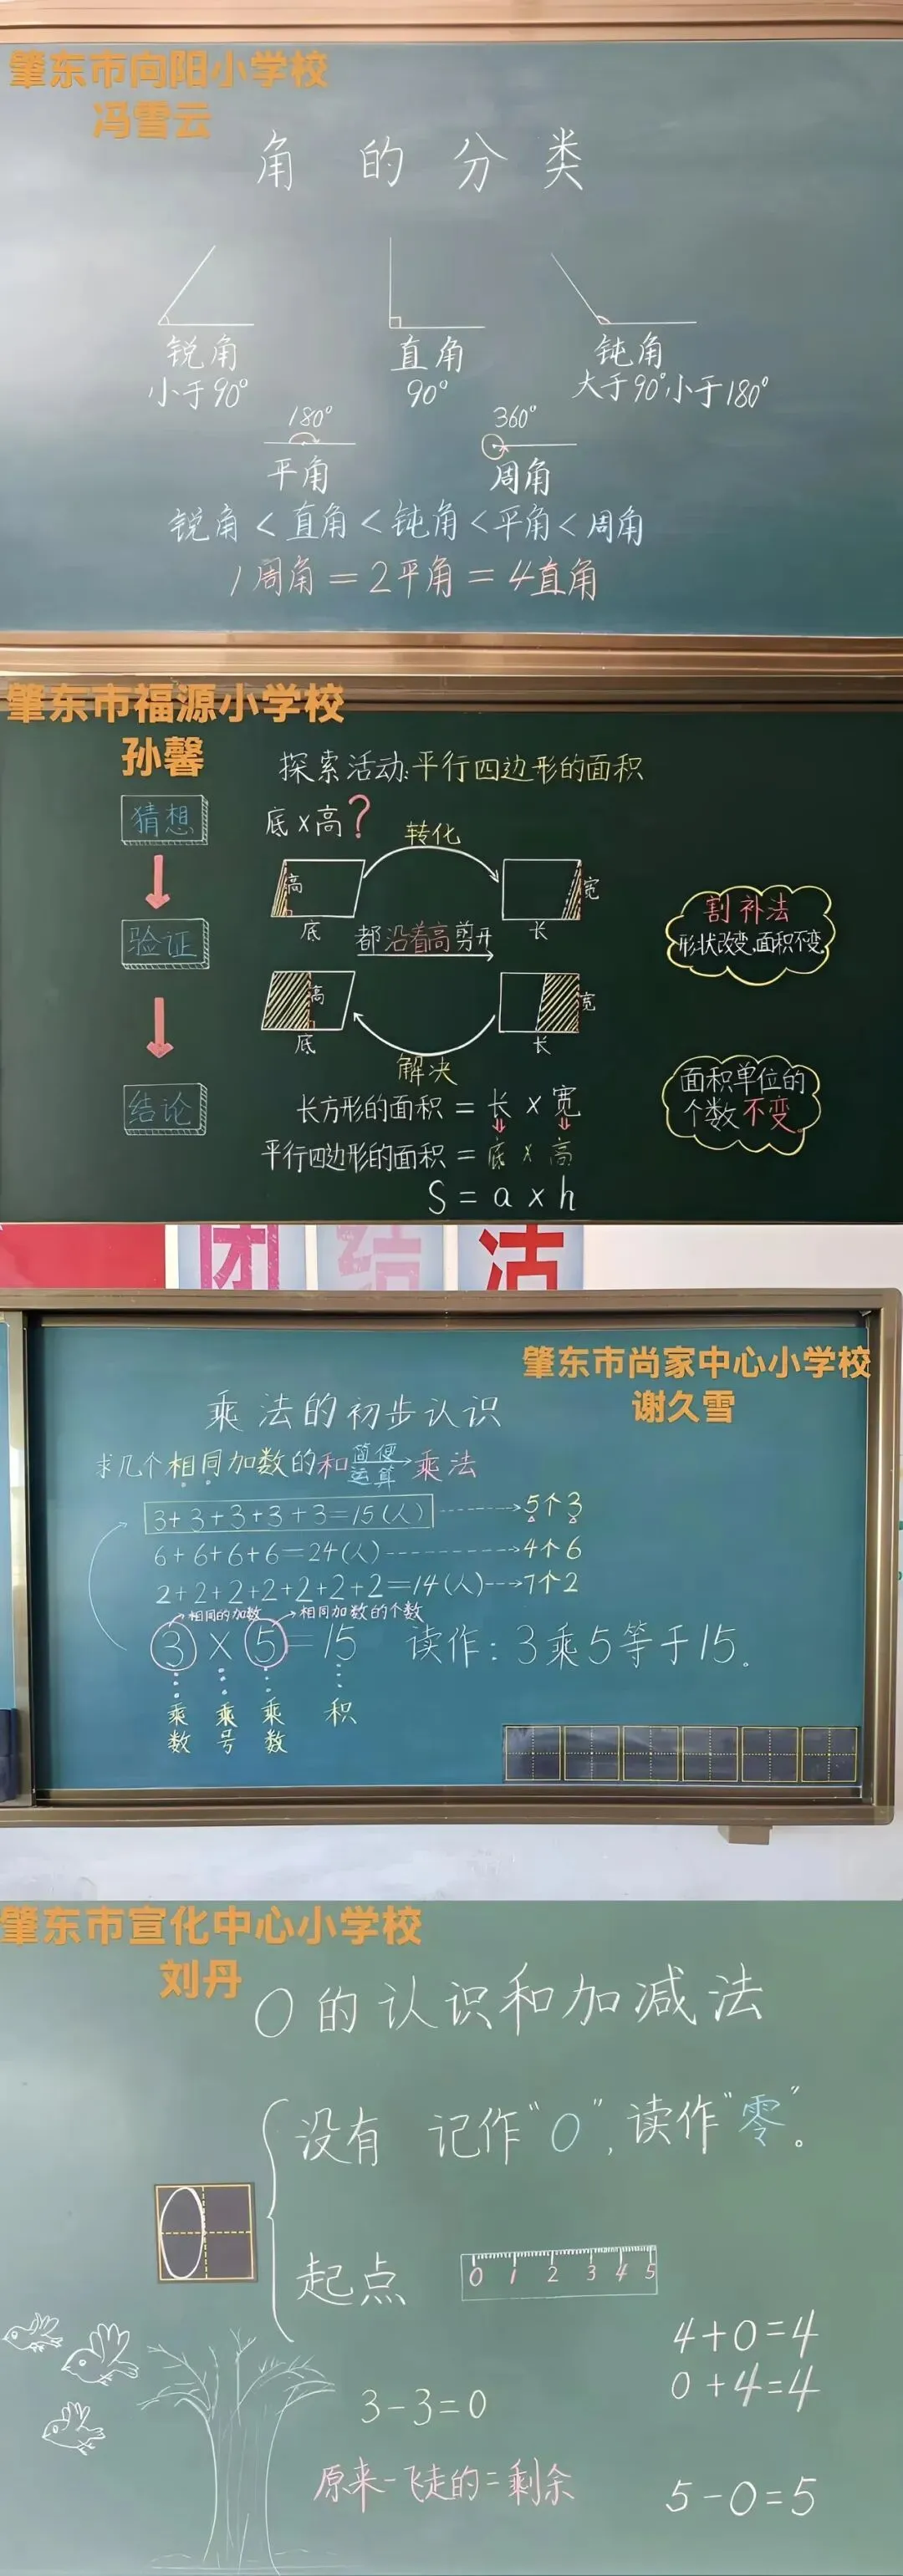 肇东市向阳小学校
冯雪云
角的分类
锐角 直角 钝角
小于90° 90° 大于90°小于180°
180° 360°
平角 周角
锐角<直角<钝角<平角<周角
1周角=2平角=4直角
肇东市福源小学校
孙馨
探索活动:平行四边形的面积
猜想
底×高?
转化
高 宽
底 长
都沿着高剪开
割补法
形状改变,面积不变
验证
高 宽
底 长
解决
面积单位的
个数不变。
结论
长方形的面积=长×宽
平行四边形的面积=底×高
S=a×h
团结活
肇东市尚家中心小学校
谢久雪
乘法的初步认识
求几个相同加数的和 简便运算 乘法
3+3+3+3+3=15(人) 5个3
6+6+6+6=24(人) 4个6
2+2+2+2+2+2+2=14(人) 7个2
相同的加数 相同加数的个数
3×5=15 读作:3乘5等于15。
乘数 乘号 乘数 积
肇东市宣化中心小学校
刘丹
0的认识和加减法
没有 记作“0”,读作“零”。
0
起点
0 1 2 3 4 5
4+0=4
0+4=4
3-3=0
原来-飞走的=剩余
5-0=5